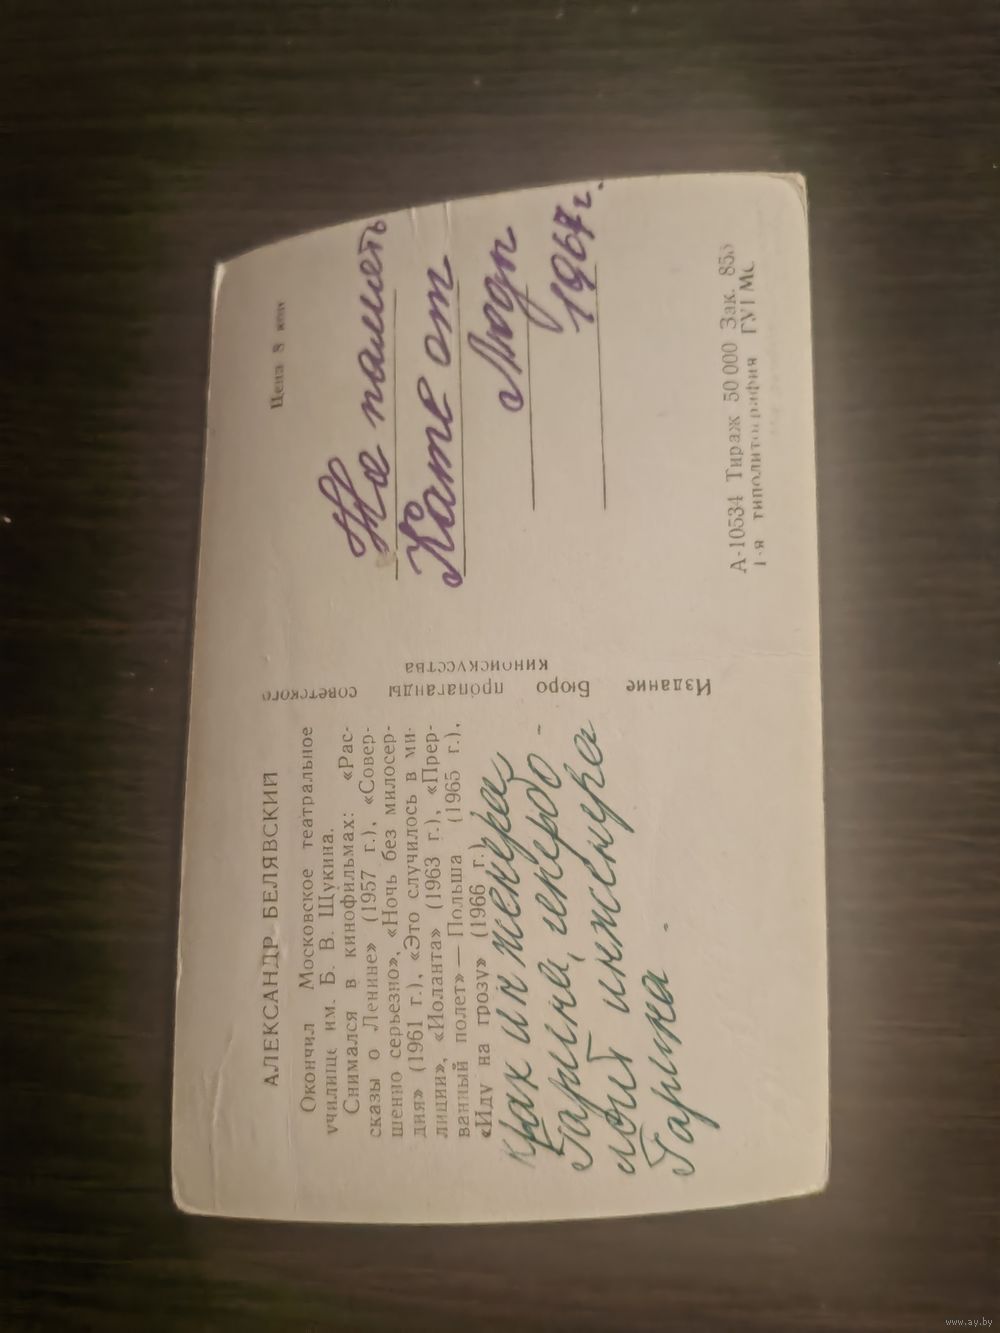 АЛЕКСАНДР БЕЛЯВСКИЙ
Окончил Московское театральное
училище им. Б. В. Щукина.
Снимался в кинофильмах: «Рас-
сказы о Ленине» (1957 г.), «Совер-
шенно серьезно», «Ночь без милосер-
дия» (1961 г.), «Это случилось в ми-
лиции», «Иоланта» (1963 г.), «Прер-
ванный полет» — Польша (1965 г.),
«Иду на грозу» (1966 г.)
Крах инженера
Гарина, гипербо-
лоид инженера
Гарина.
Издание Бюро пропаганды советского
киноискусства
Цена 8 коп
На память
Кате от
Люды
1967 г.
А-10534 Тираж 50 000 Зак. 853
1-я типолитография ГУГМС
www.ay.by